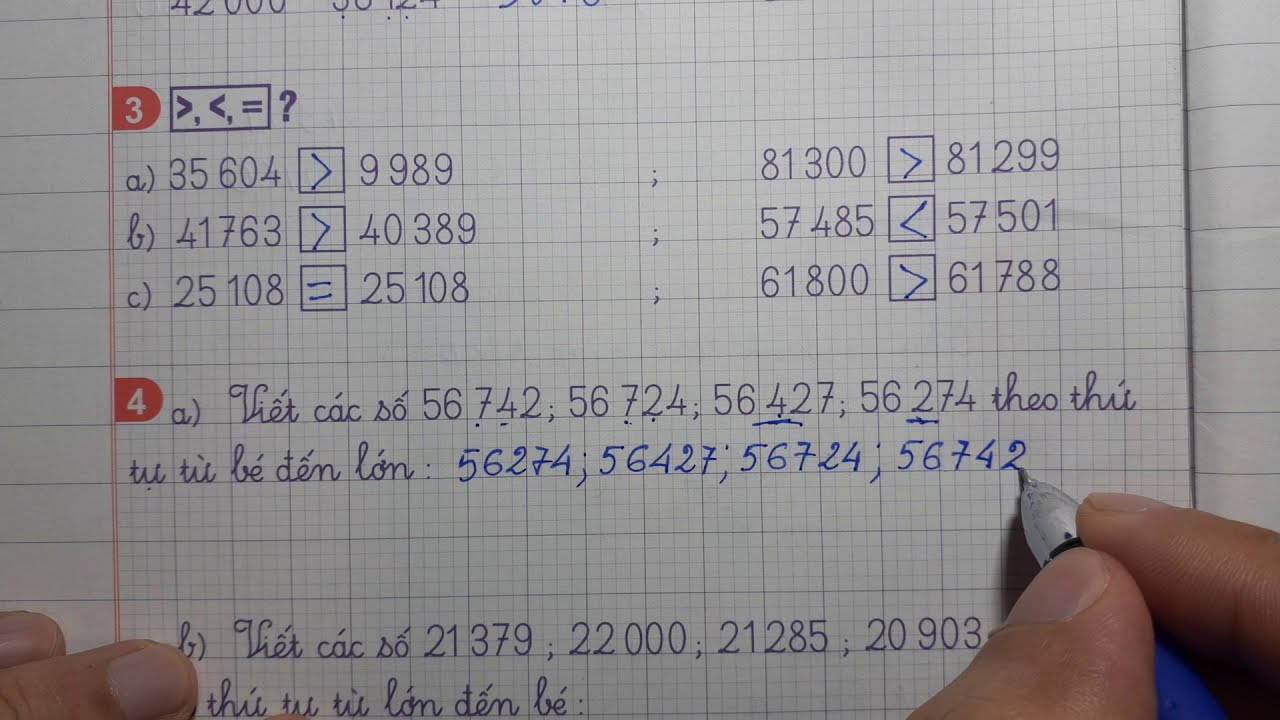 42 000
3 >, <, = ?
a) 35 604 > 9 989 ; 81 300 > 81 299
b) 41 763 > 40 389 ; 57 485 < 57 501
c) 25 108 = 25 108 ; 61 800 > 61 788
4 a) Viết các số 56 742; 56 724; 56 427; 56 274 theo thứ
tự từ bé đến lớn: 56274; 56427; 56724; 56742
b) Viết các số 21 379; 22 000; 21 285; 20 903
thứ tự từ lớn đến bé: